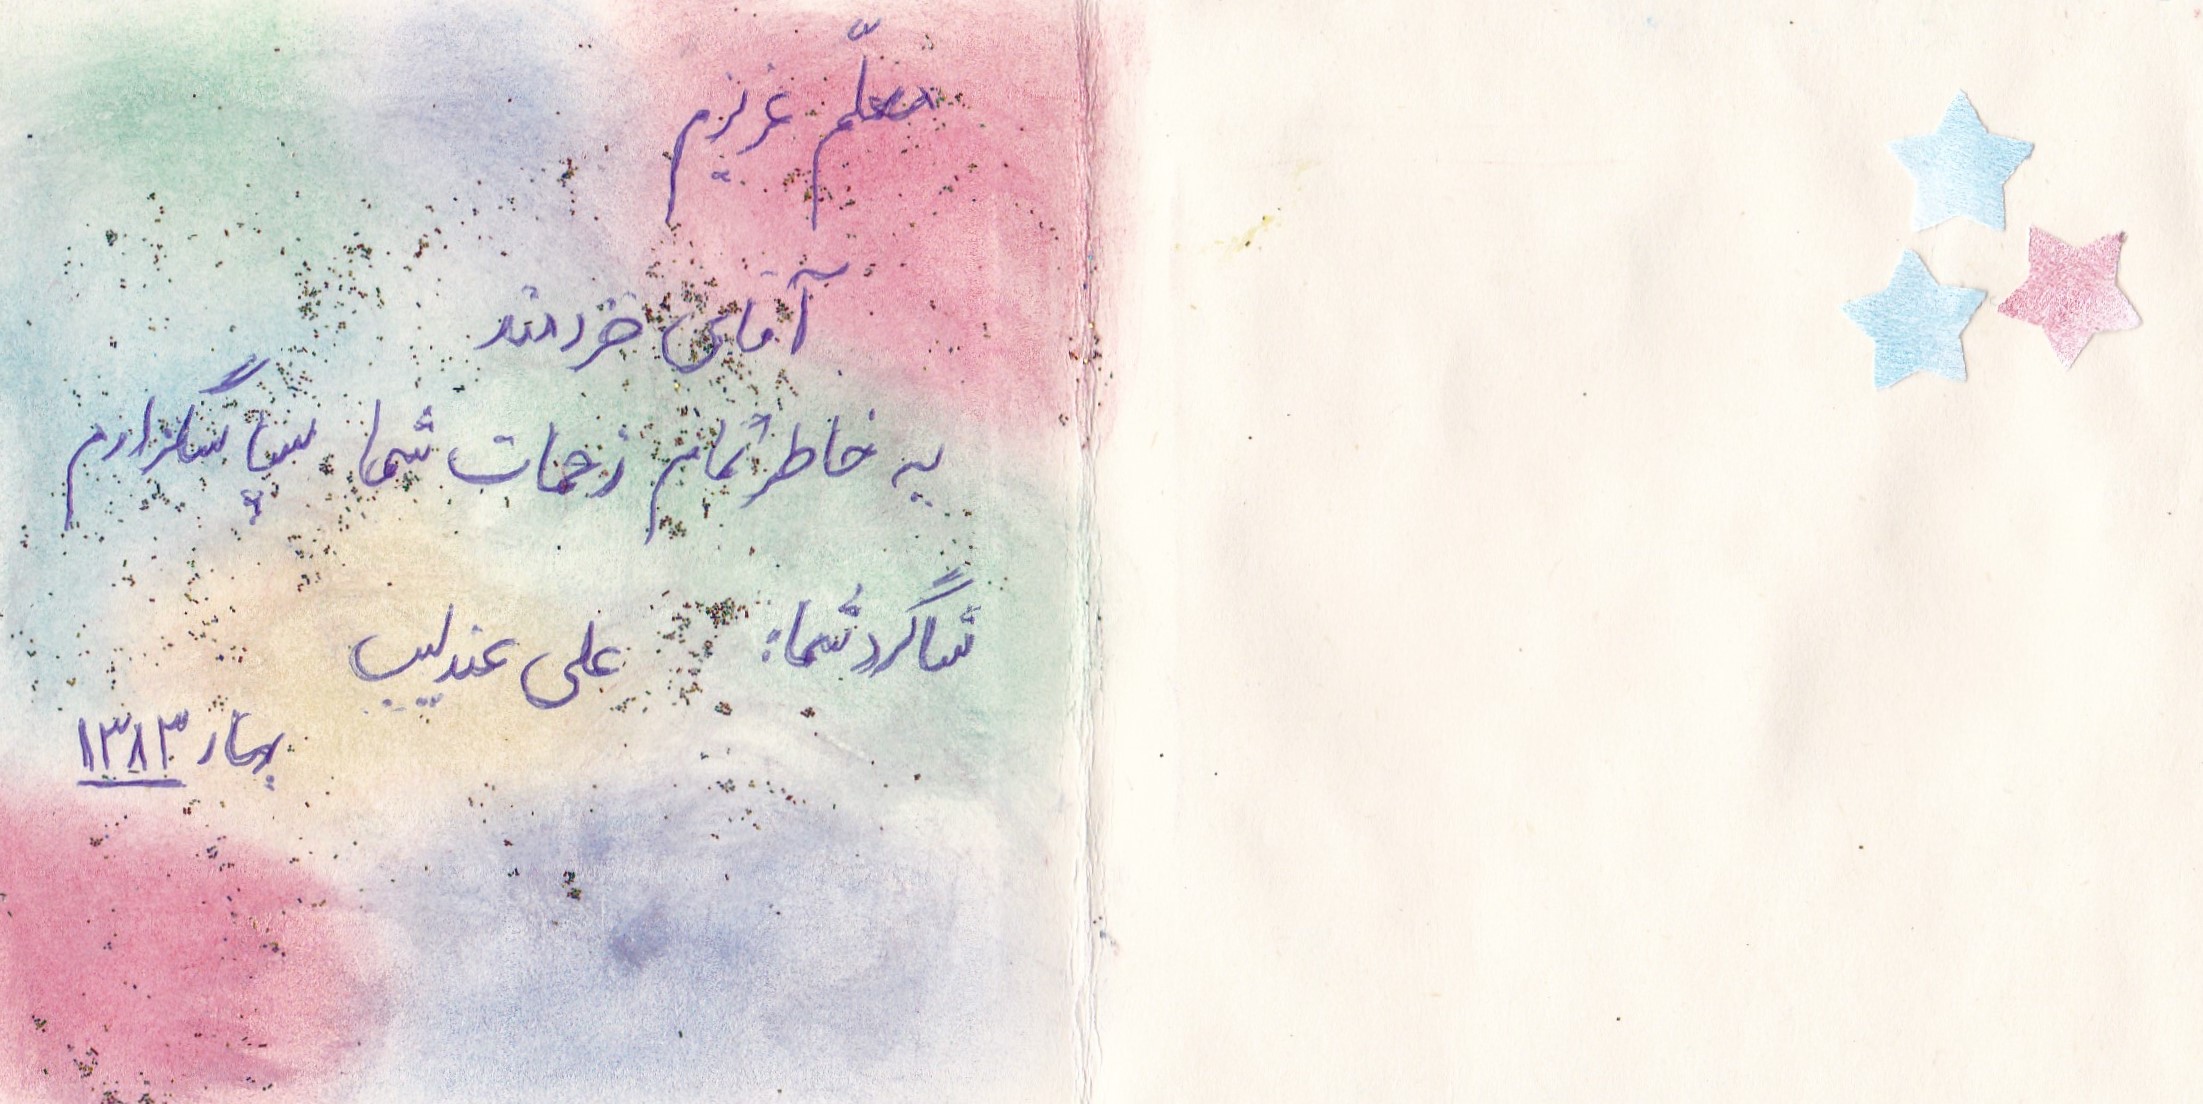 معلّم عزیزم
آقای خردمند
به خاطر تمام زحمات شما سپاسگزارم
شاگرد شما: علی عندلیب
بهار ۱۳۸۳